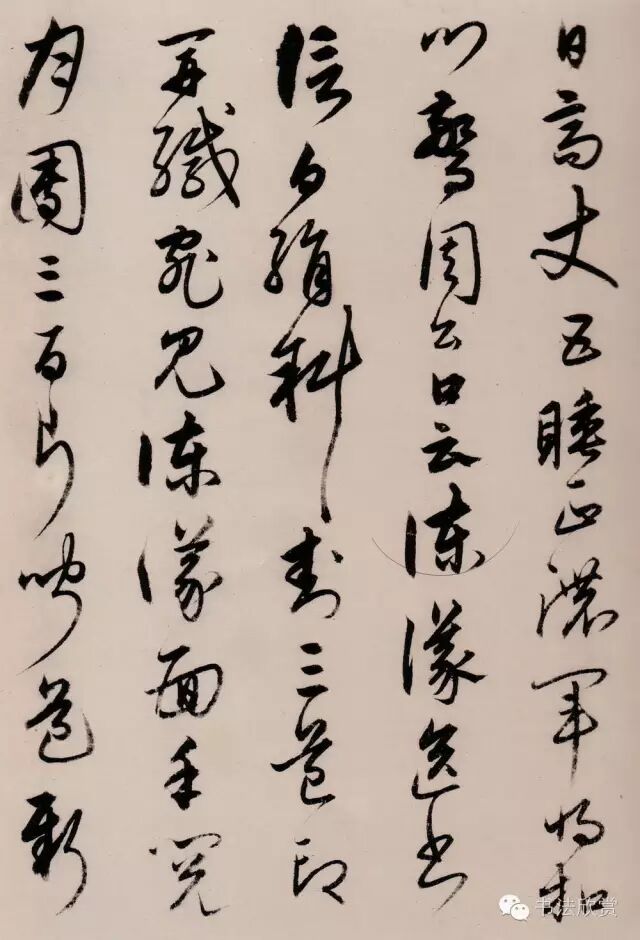 日高丈五睡正濃軍將扣
門驚周公口云諫議送書
信白絹斜封三道印
開緘宛見諫議面手閱
月團三百片聞道新
书法欣赏